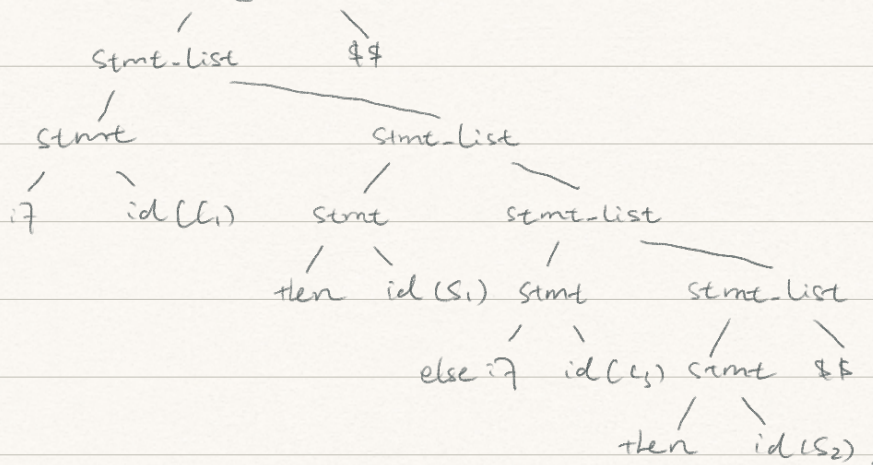 stmt_list $$
stmt stmt_list
if id(C₁) stmt stmt_list
then id(S₁) stmt stmt_list
else if id() stmt $$
then id(S₂)